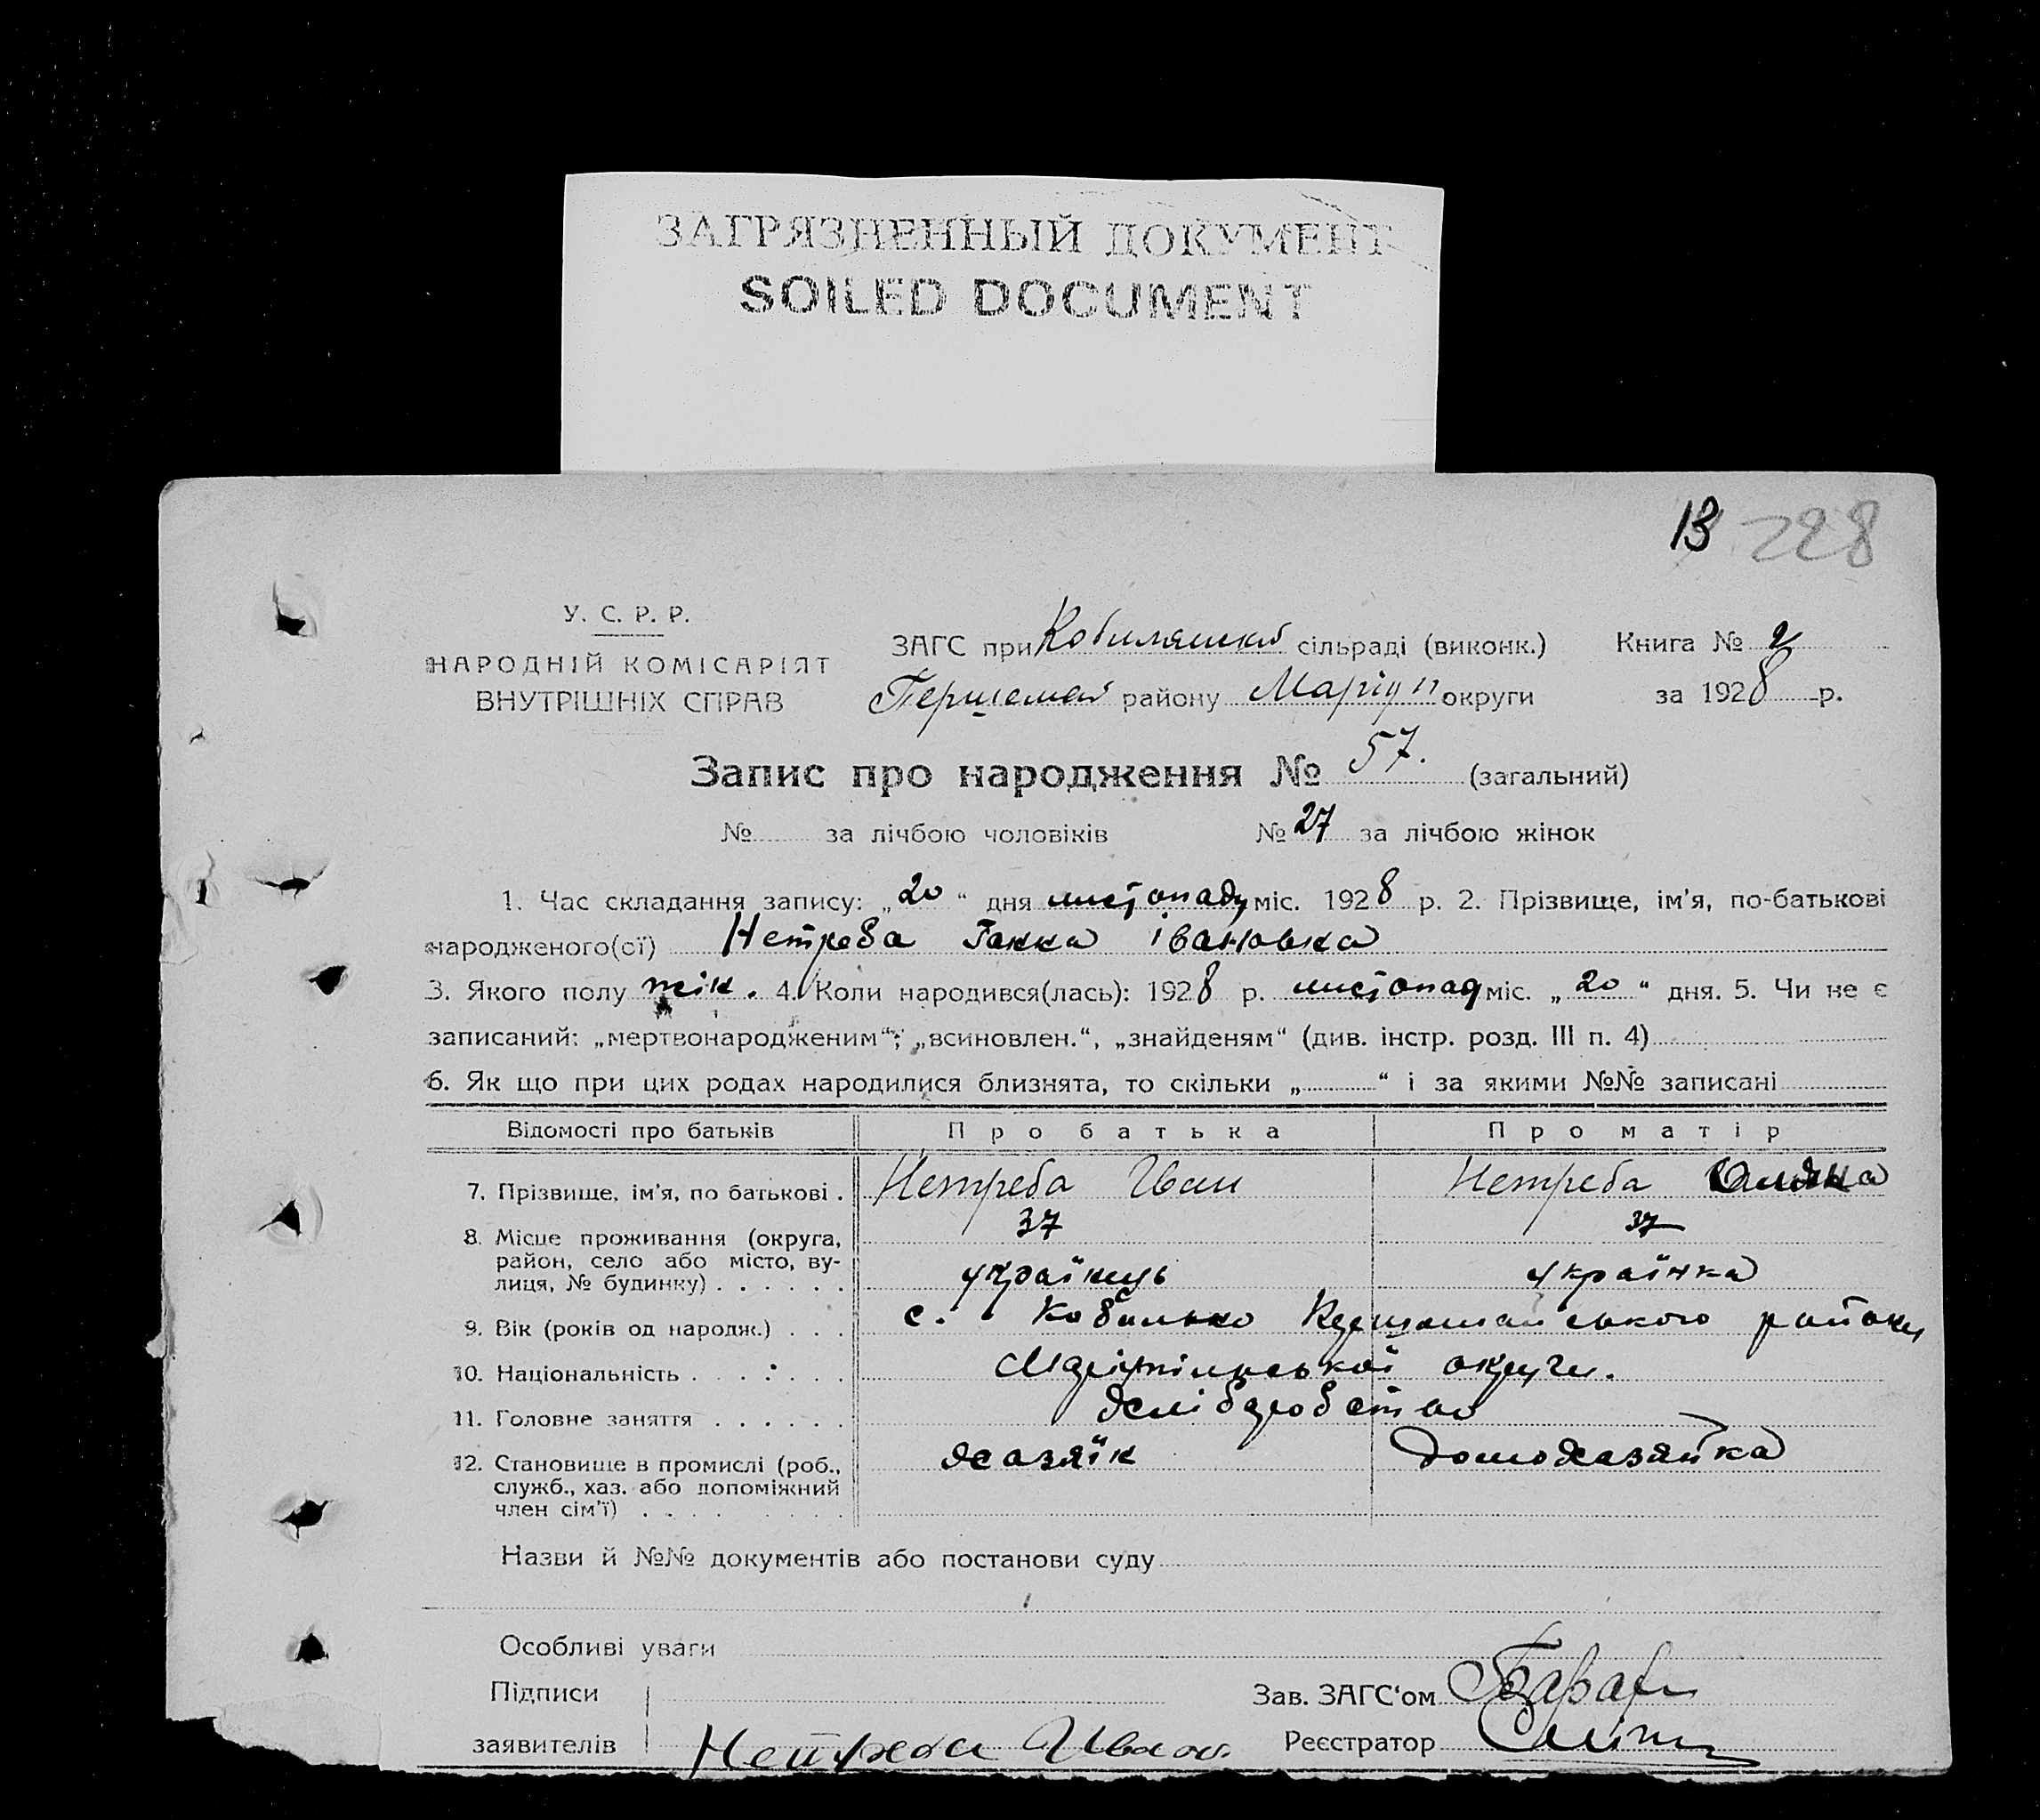 ЗАГРЯЗНЕННЫЙ ДОКУМЕНТ
SOILED DOCUMENT
13 228
У. С. Р. Р.
НАРОДНІЙ КОМІСАРІЯТ
ВНУТРІШНІХ СПРАВ
ЗАГС при сільраді (виконк.) Книга № 2
Першемай району Маріуп округи за 1928 р.
Запис про народження № 57. (загальний)
№ за лічбою чоловіків № 27 за лічбою жінок
1. Час складання запису: „20“ дня листопаду міс. 1928 р. 2. Прізвище, ім'я, по-батькові
народженого(ої) Нетреба Ганна Івановна
3. Якого полу жін. 4. Коли народився(лась): 1928 р. листопад міс. „20“ дня. 5. Чи не є
записаний: „мертвонародженим“; „всиновлен.“, „знайденям“ (див. інстр. розд. III п. 4)
6. Як що при цих родах народилися близнята, то скільки „ “ і за якими №№ записані
Відомості про батьків Про батька Про матір
7. Прізвище, ім'я, по батькові . Нетреба Иван Нетреба
37 37
8. Місце проживання (округа,
район, село або місто, ву-
лиця, № будинку) . . . . . . українець українка
9. Вік (років од народж.) . . . с. району
10. Національність . . . . . . округи.
11. Головне заняття . . . . . . хліборобство
12. Становище в промислі (роб., хазяїк домохазяйка
служб., хаз. або допоміжний
член сім'ї) . . . . . . . .
Назви й №№ документів або постанови суду
Особливі уваги
Підписи Зав. ЗАГС'ом
заявителів Нетреба Иван Реєстратор